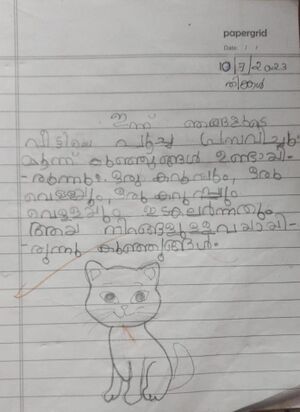 papergrid
Date: / /
10/7/2023
തിങ്കൾ
ഇന്ന് ഞങ്ങളുടെ
വീട്ടിലെ പൂച്ച പ്രസവിച്ചു
മൂന്ന് കുഞ്ഞുങ്ങൾ ഉണ്ടായി-
-രുന്നു. ഒരു കറുപ്പും, ഒരു
വെള്ളയും, ഒരു കറുപ്പും
വെള്ളയും, ഇടകലർന്നതും
ആയ നിറങ്ങളുള്ളവയായി-
-രുന്നു കുഞ്ഞുങ്ങൾ.